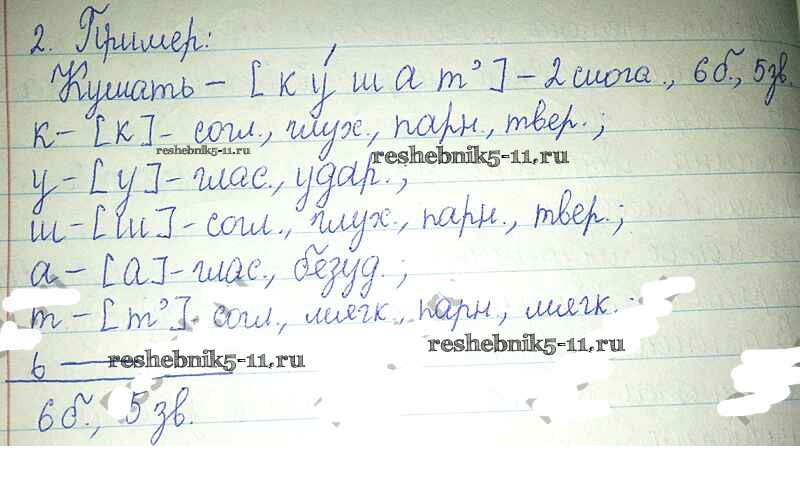 2. Пример:
Кушать – [к у́ ш а т'] – 2 слога., 6 б., 5 зв.
к – [к] – согл., глух., парн., твер.;
reshebnik5-11.ru
reshebnik5-11.ru
у – [у] – глас., удар.;
ш – [ш] – согл., глух., парн., твер.;
а – [а] – глас., безуд.;
т – [т'] – согл., мягк., парн., мягк.
ь ———
reshebnik5-11.ru
reshebnik5-11.ru
6 б., 5 зв.